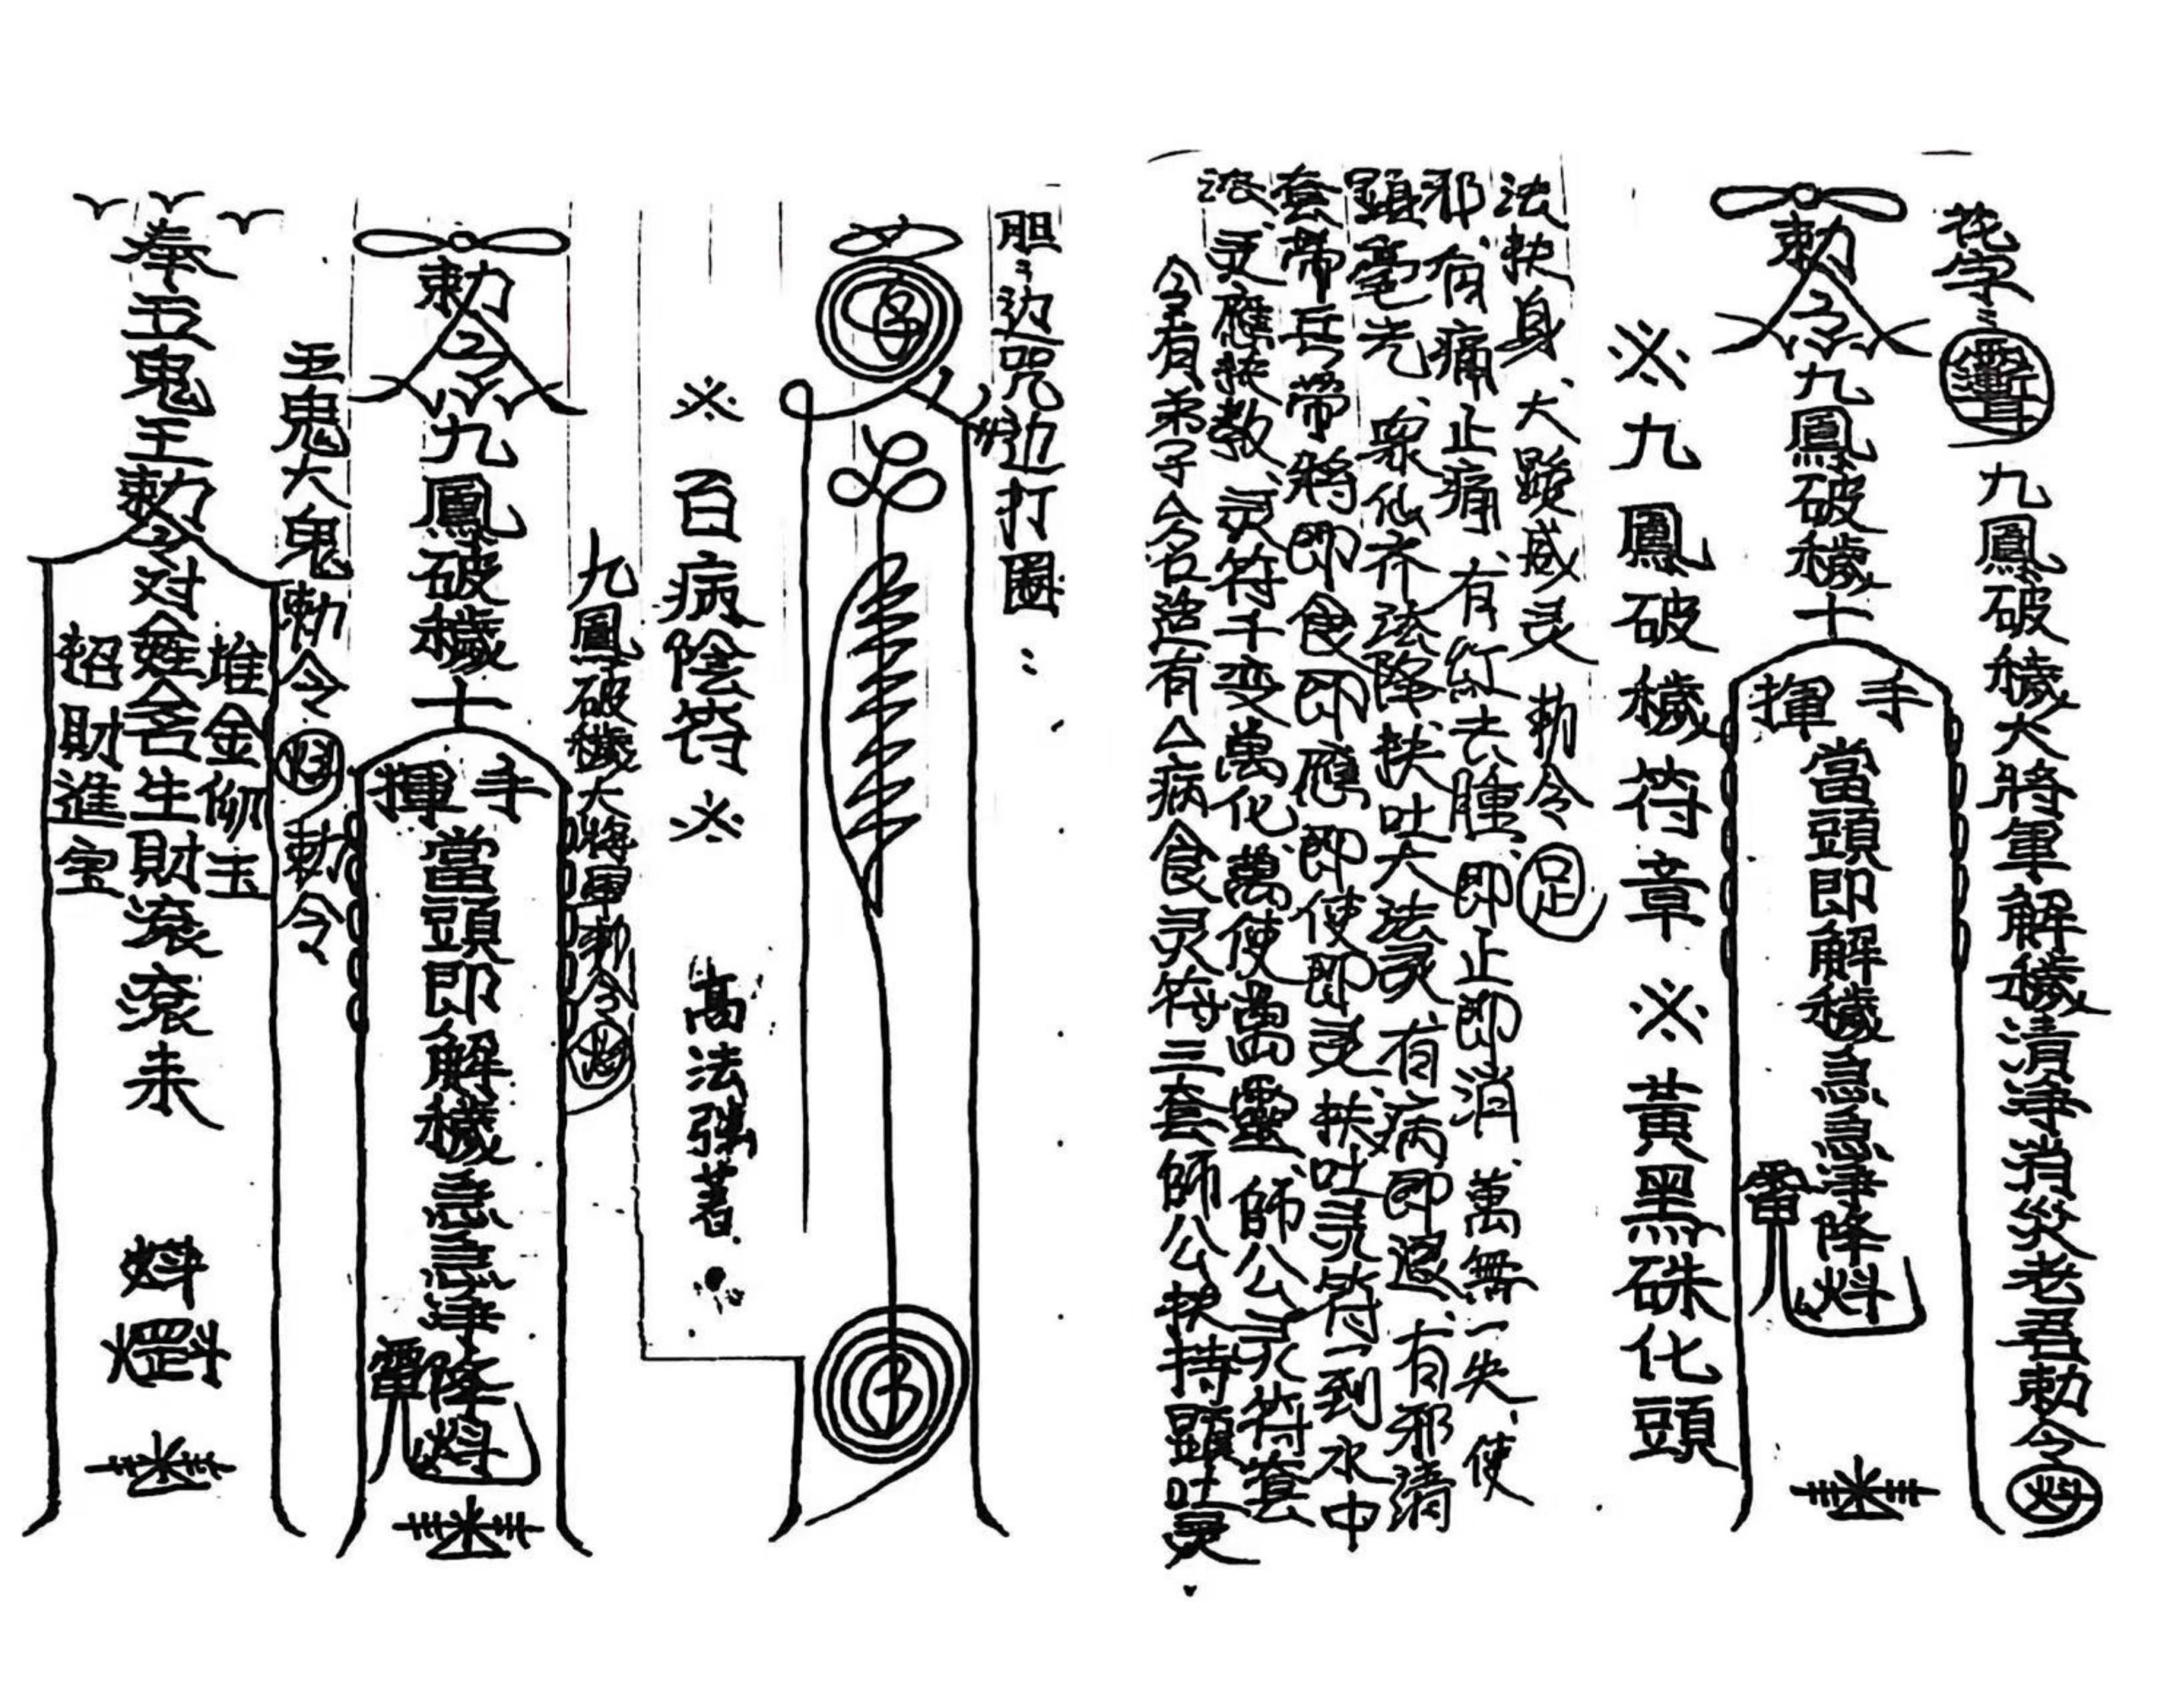 花字:
九鳳破穢大將軍解穢清淨消災老君勅令
勅令九鳳破穢士
手揮
當頭即解穢急急淨降
雷
※九鳳破穢符章※黃黑硃化頭
法扶身、大顯威灵 勅令 足
邪、有痛止痛、有紅去腫、即止即消、萬無一失、使
顕毫光、眾仙齐法降扶吐大法灵、有病即退、有邪清
套帶兵帶將即食即應、即使即灵、扶吐灵符一到水中
法、灵應扶教、灵符千变萬化、萬使萬靈、師公灵符套
今有弟子厶名造有厶病食灵符三套師公扶持顕吐灵
胆:边咒边打圈:
※百病陰符※ 高法強著
九鳳破穢大將軍勅令
勅令九鳳破穢士
手揮
當頭即解穢急急淨降
雷
五鬼大鬼勅令 勅令
奉五鬼王勅令对姓名生財滾滾来
堆金
招財進宝